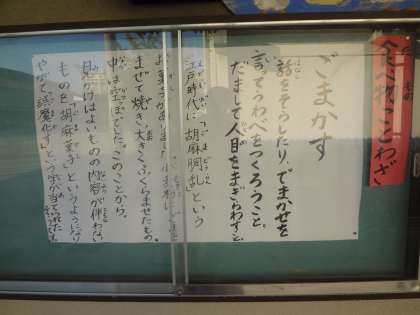 食べ物ことわざ
ごまかす
話をそらしたり、でまかせを
言ってうわべをつくろうこと。
だまして人目をまぎらわすこと
江戸時代に「胡麻胴乱」という
お菓子がありました。小麦粉に
まぜて焼き、大きくふくらませたもの
中は空っぽでした。このことから、
見かけはよいものの内容が伴わない
ものを「胡麻菓子」というようになり
やがて「誤魔化す」という字が当てられた